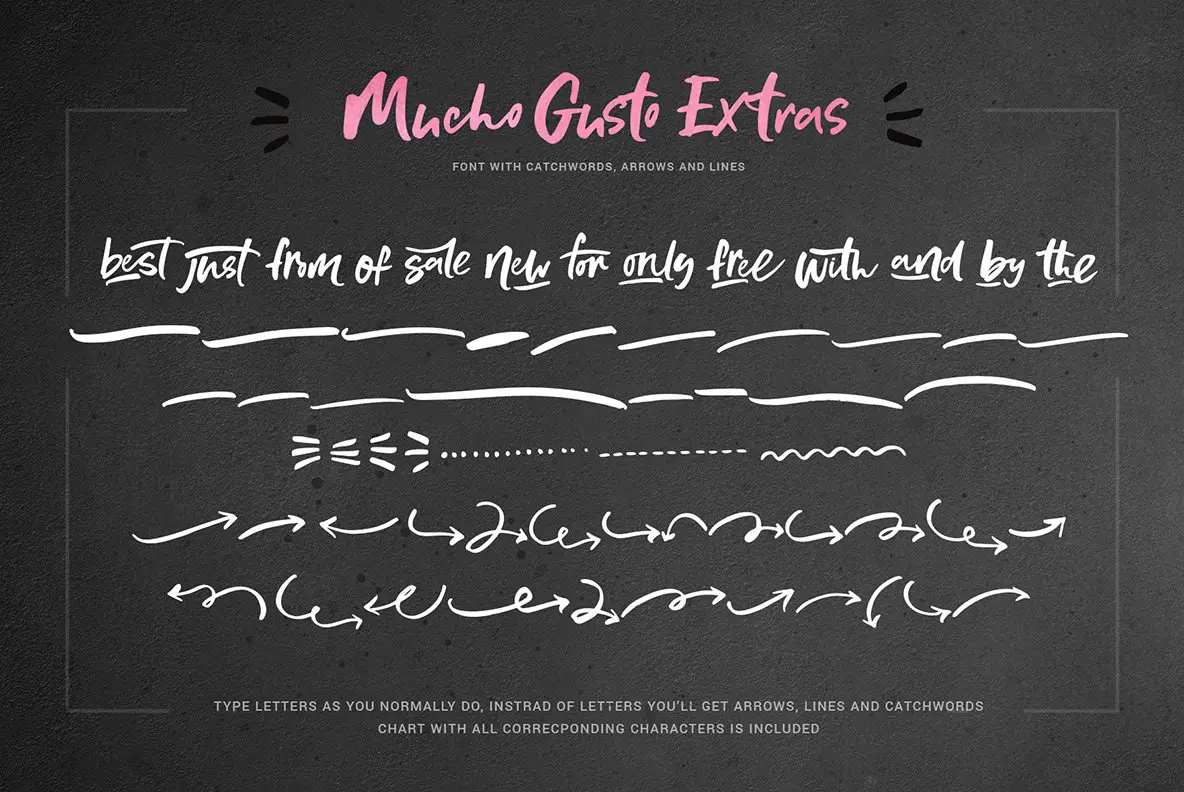 Mucho Gusto Extras
FONT WITH CATCHWORDS, ARROWS AND LINES
best just from of sale new for only free with and by the
TYPE LETTERS AS YOU NORMALLY DO, INSTRAD OF LETTERS YOU'LL GET ARROWS, LINES AND CATCHWORDS
CHART WITH ALL CORRECPONDING CHARACTERS IS INCLUDED